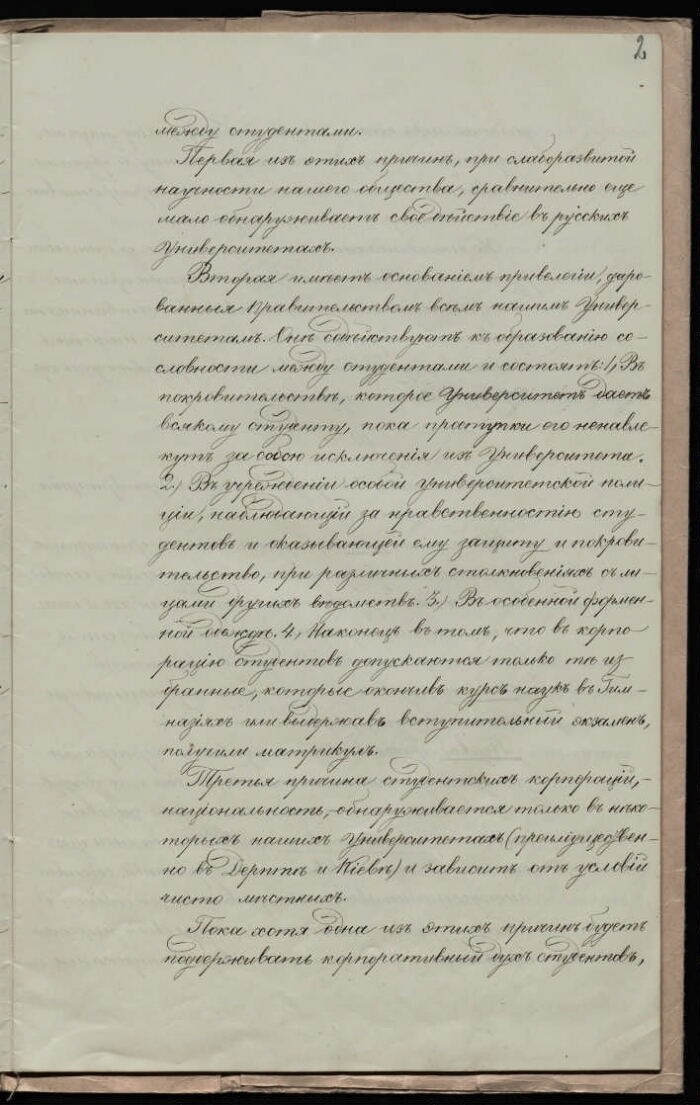 2
между студентами.
Первая изъ этихъ причинъ, при слаборазвитой
научности нашего общества, сравнительно еще
мало обнаруживаетъ свое дѣйствіе въ русскихъ
Университетахъ.
Вторая имѣетъ основаніемъ привелегіи, даро-
ванныя Правительствомъ всѣмъ нашимъ Универ-
ситетамъ. Онѣ содѣйствуютъ къ образованію со-
словности между студентами и состоятъ: 1, Въ
покровительствѣ, которое Университетъ даетъ
всякому студенту, пока проступки его ненавле-
кутъ за собою исключенія изъ Университета.
2) Въ учрежденіи особой университетской поли-
ціи, наблюдающій за нравственностію сту-
дентовъ и оказывающей ему защиту и покрови-
тельство, при различныхъ столкновеніяхъ съ ли-
цами другихъ вѣдомствъ. 3.) Въ особенной формен-
ной одеждѣ. 4, Наконецъ въ томъ, что въ корпо-
рацію студентовъ допускаются только тѣ из
бранные, которые окончивъ курсъ наукъ въ Гим-
назіяхъ или выдержавъ вступительный экзаменъ,
получили матрикулъ.
Третья причина студентскихъ корпорацій,-
національность,-обнаруживается только въ нѣко-
торыхъ нашихъ Университетахъ (преимуществен-
но въ Дерптѣ и Кіевѣ) и зависитъ отъ условій
чисто мѣстныхъ.
Пока хотя одна изъ этихъ причинъ будетъ
поддерживать корпоративный духъ студентовъ,